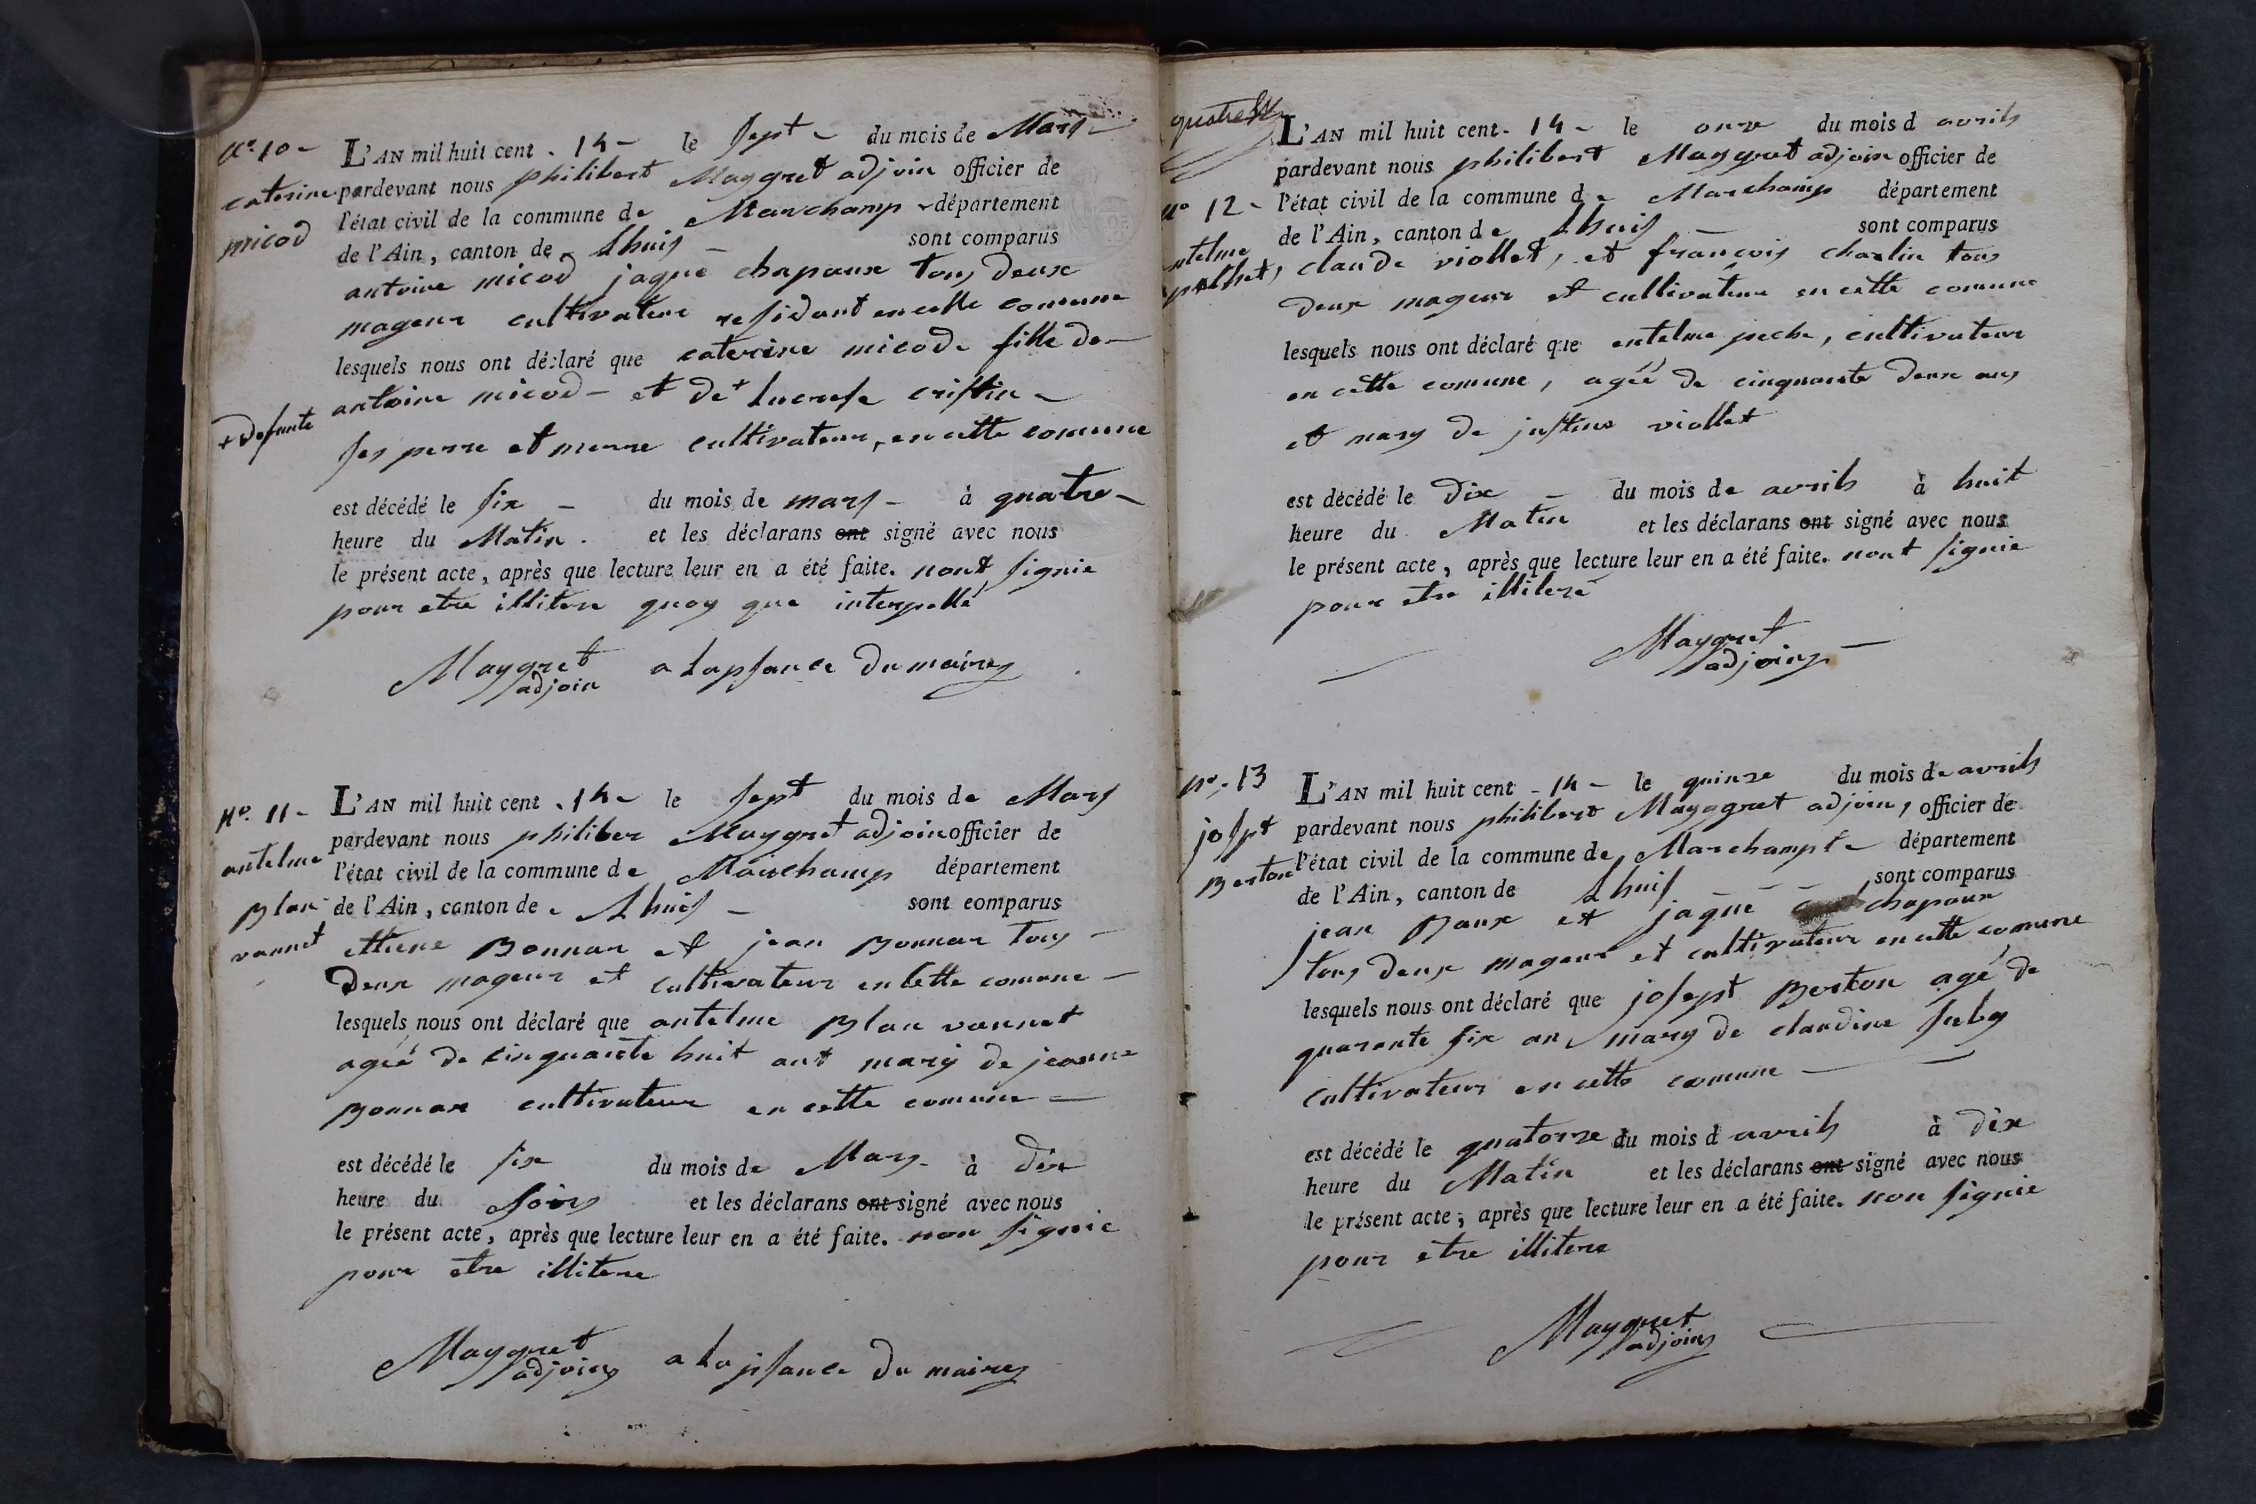 N.° 10 -
caterine
micod
L'AN mil huit cent - 14 - le sept - du mois de Mars -
pardevant nous philibert Maygret adjoin officier de
l'état civil de la commune de Marchamp - département
de l'Ain, canton de Lhuis - sont comparus
antoine micod jaque chapaux tous deux
mageur cultivateur residant en cette comune
lesquels nous ont déclaré que caterine micod fille de -
antoine micod - et de + lucrese cristin -
+ defunte
ses perre et merre cultivateur, en cette comune
est décédé le six - du mois de mars - à quatre -
heure du Matin. et les déclarans ont signé avec nous
le présent acte, après que lecture leur en a été faite. nont signie
pour etre illitere quoy que interpellé
Maygret
adjoin a Lapsance du maire
N.° 11 -
antelme
Blan
vannet
L'AN mil huit cent - 14 - le sept du mois de Mars
pardevant nous philiber Maygret adjoin officier de
l'état civil de la commune de Marchamp département
de l'Ain, canton de Lhuis - sont comparus
ettiene Bonnar et jean Bonnar tous -
Deux mageur et cultivateur en cette comune -
lesquels nous ont déclaré que antelme Blan vannet
ageé de cinquante huit ant mary de jeanne
Bonnar cultivateur en cette comune -
est décédé le six du mois de Mars - à dix
heure du soir et les déclarans ont signé avec nous
le présent acte, après que lecture leur en a été faite. non signie
pour etre illitere
Maygret
adjoin a La psance du maire
quatre
N° 12 -
antelme
L'AN mil huit cent - 14 - le onze du mois d avrils
pardevant nous philibert Maygret adjoin officier de
l'état civil de la commune de Marchamp département
de l'Ain, canton de Lhuis - sont comparus
claude viollet, et françois charlin tous
deux mageur et cultivateur en cette comune
lesquels nous ont déclaré que antelme peche, cultivateur
en cette comune, ageé de cinquante deux ans
et mary de justine viollet
est décédé le Dix - du mois de avrils à huit
heure du Matin et les déclarans ont signé avec nous
le présent acte, après que lecture leur en a été faite. nont signie
pour etre illiteré
Maygret
adjoin -
N°. 13
josept
Berton
L'AN mil huit cent - 14 - le quinze du mois de avrils
pardevant nous philibert Mayggret adjoin, officier de
l'état civil de la commune de Marchampt - département
de l'Ain, canton de Lhuis - - sont comparus
jean Baux et jaque chapaux
tous deux mageur et cultivateur en cette comune
lesquels nous ont déclaré que josept Berton agé de
quarante six an mary de claudine
cultivateur en cette comune -
est décédé le quatorze du mois d avrils à dix
heure du Matin et les déclarans ont signé avec nous
le présent acte, après que lecture leur en a été faite. non signie
pour etre illitere
Maygret
adjoin